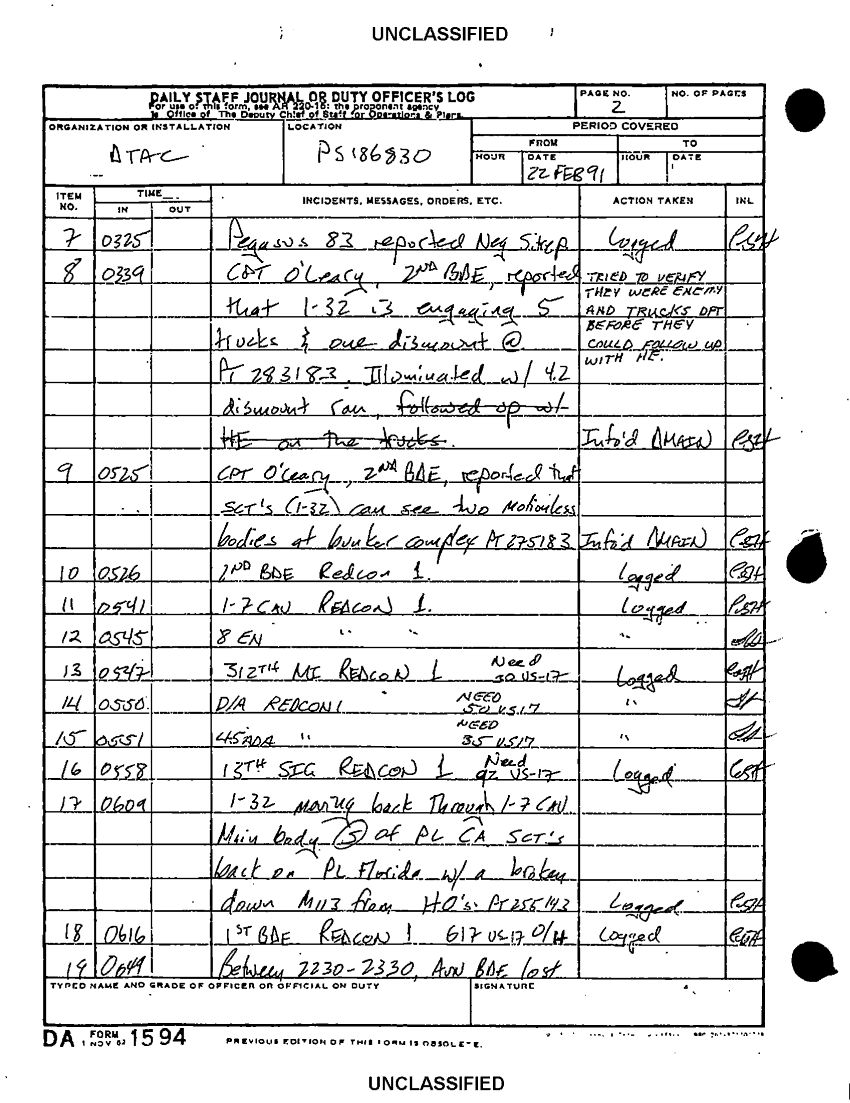 UNCLASSIFIED
DAILY STAFF JOURNAL OR DUTY OFFICER'S LOG
For use of this form, see AR 220-15; the proponent agency
is Office of The Deputy Chief of Staff for Operations & Plans.
PAGE NO.
2
NO. OF PAGES
ORGANIZATION OR INSTALLATION
DTAC
LOCATION
PS186830
PERIOD COVERED
FROM
TO
HOUR
DATE
22 FEB 91
HOUR
DATE
ITEM NO.
TIME
IN
OUT
INCIDENTS, MESSAGES, ORDERS, ETC.
ACTION TAKEN
INL
7 0325 Pegasus 83 reported Neg Sitrep Logged
8 0339 CPT O'Leary, 2ND BDE, reported TRIED TO VERIFY
THEY WERE ENEMY
that 1-32 is engaging 5 AND TRUCKS DPT
BEFORE THEY
trucks & one dismount @ COULD FOLLOW UP
WITH HE.
PT 283183. Illuminated w/ 4.2
dismount ran, followed up w/
HE on the trucks. Info'd DMAIN
9 0525 CPT O'Leary, 2ND BDE, reported that
SCT's (1-32) can see two Motionless
bodies at bunker complex PT 275183 Info'd DMAIN
10 0526 2ND BDE Redcon 1. Logged
11 0541 1-7 CAV REDCON 1. Logged
12 0545 8 EN " " "
13 0547 312TH MI REDCON 1 Need 30 US-17 Logged
14 0550 D/A REDCON 1 NEED 50 US17 "
15 0551 45ADA " NEED 35 US17 "
16 0558 13TH SIG REDCON 1 Need 92 US-17 Logged
17 0609 1-32 moving back Through 1-7 CAV
Main body (S) of PL CA SCT's
back on PL Florida w/ a broken
down M113 from HQ's. PT 255143 Logged
18 0616 1ST BDE REDCON 1 617 US-17 O/H Logged
19 0649 Between 2230-2330, AVN BDE lost
TYPED NAME AND GRADE OF OFFICER OR OFFICIAL ON DUTY
SIGNATURE
DA FORM 1594
1 NOV 62
PREVIOUS EDITION OF THIS FORM IS OBSOLETE.
UNCLASSIFIED